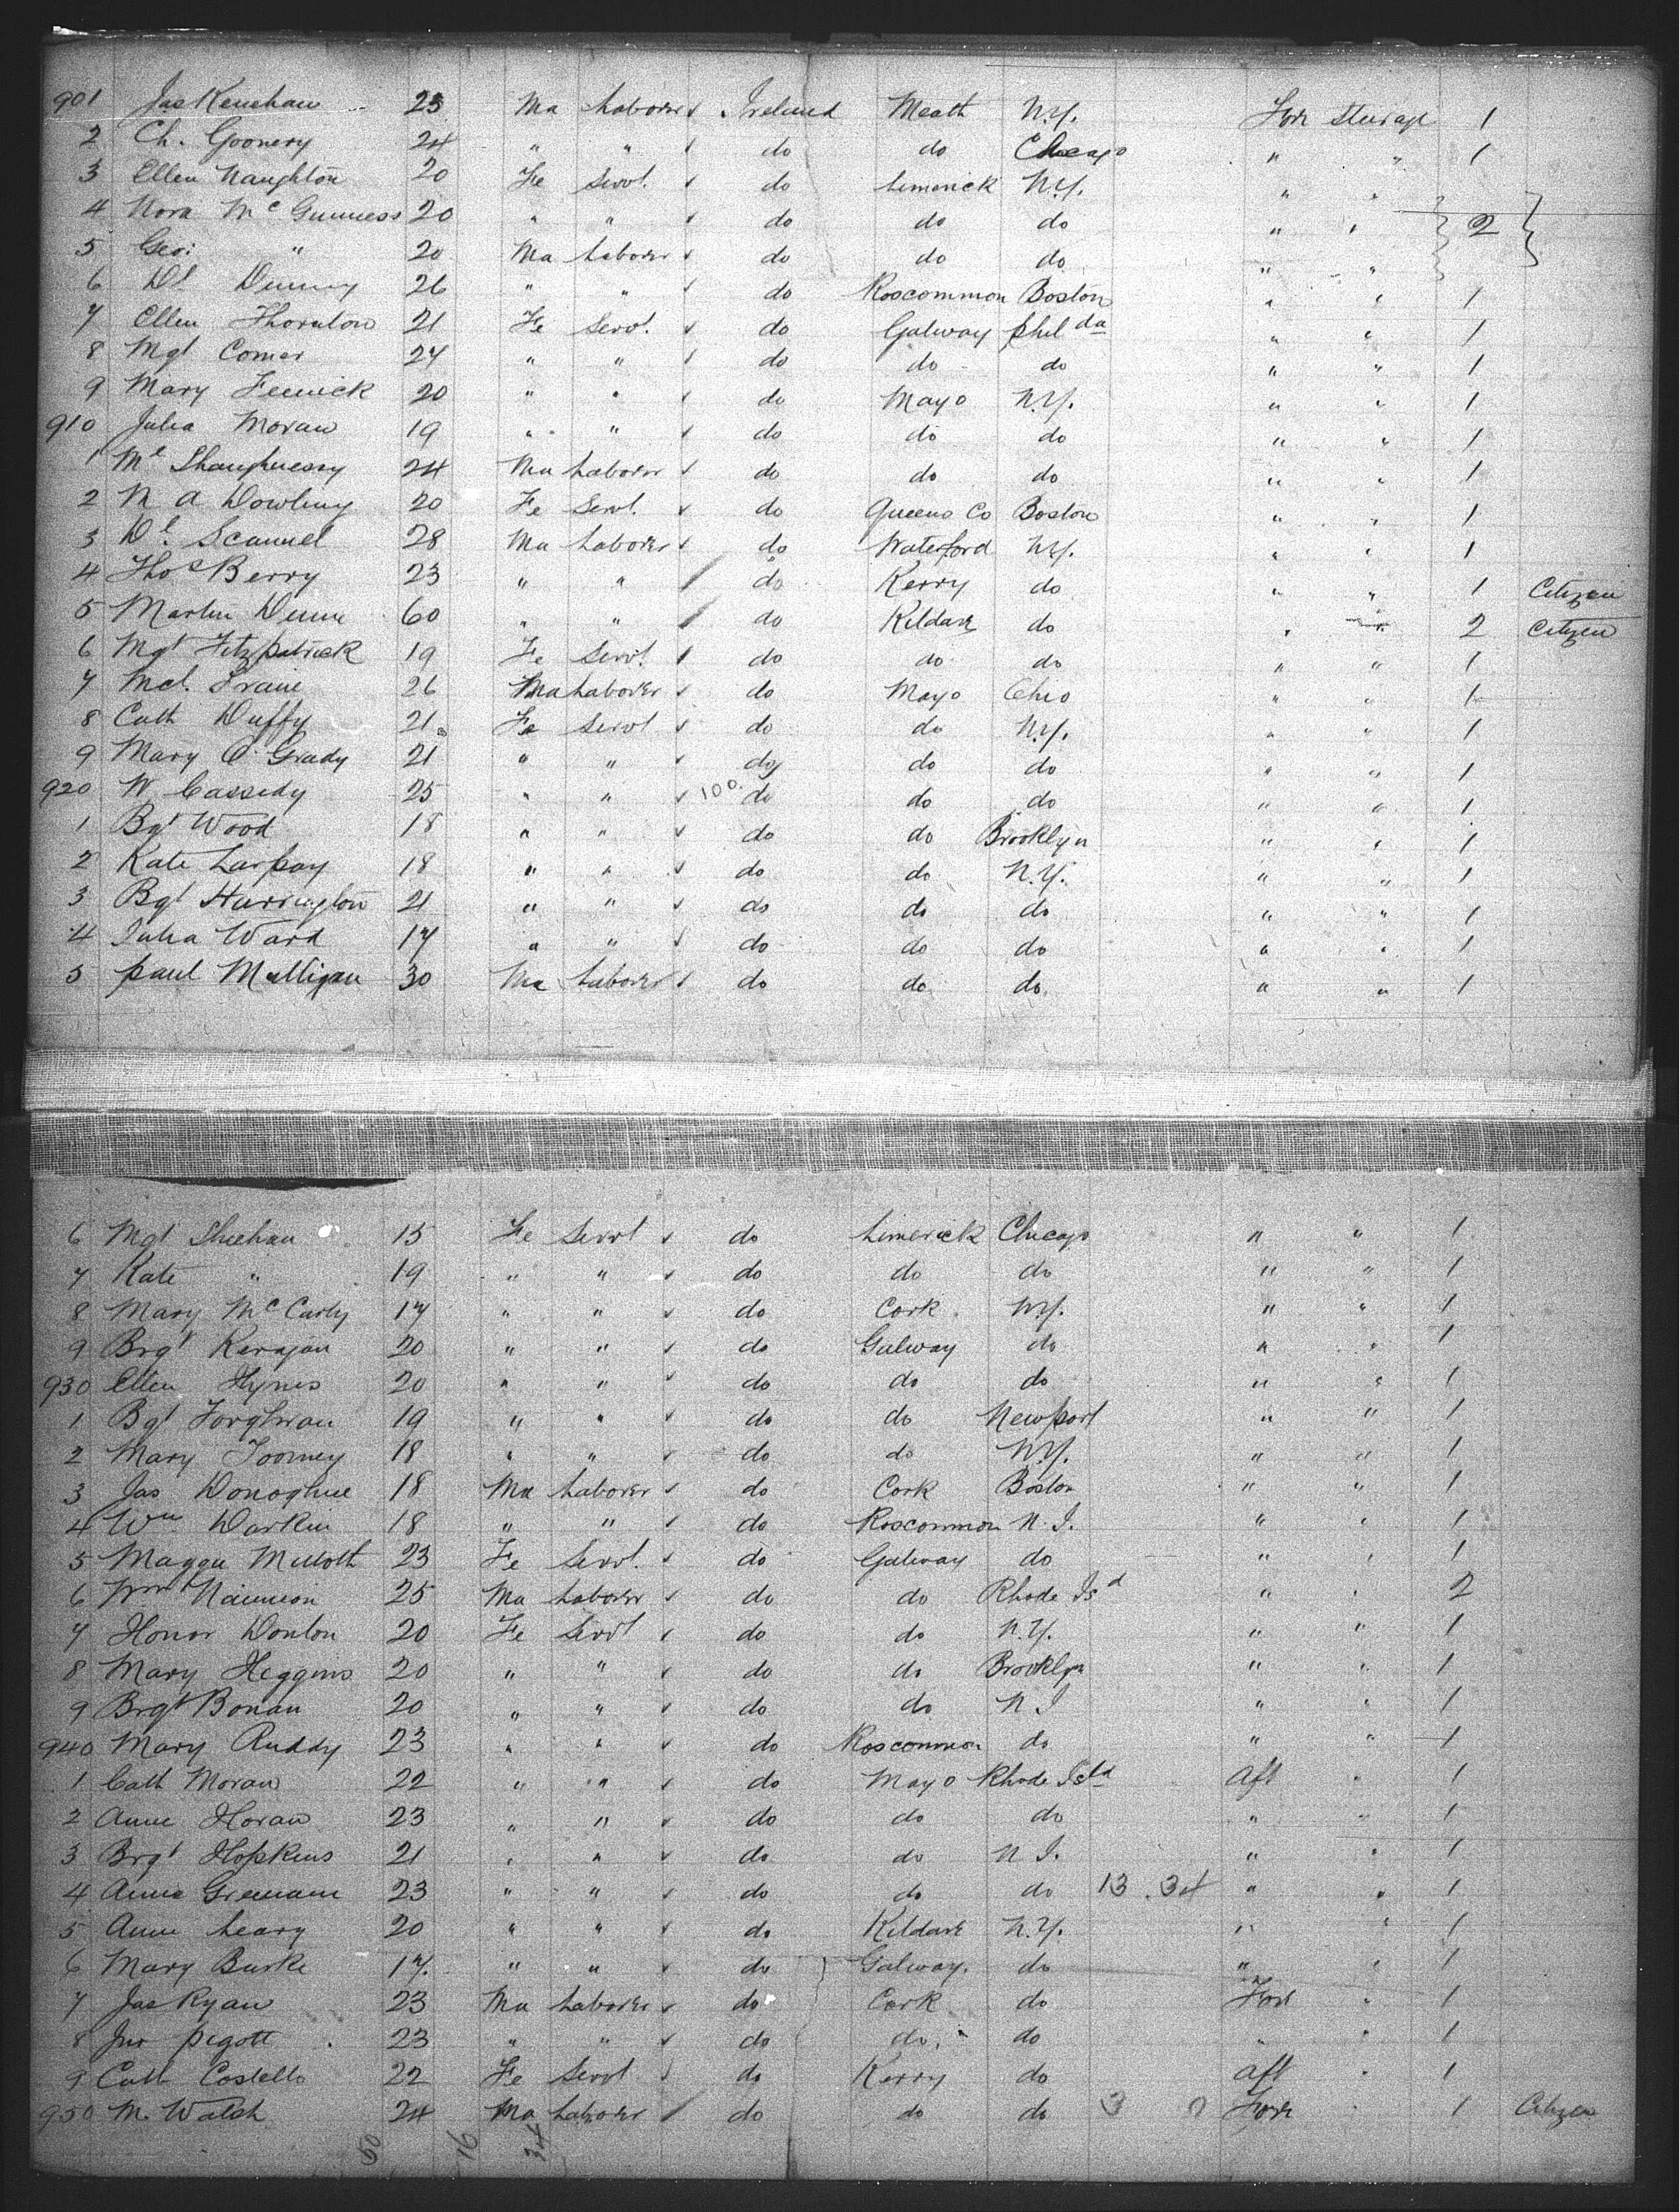 901 Jas Kenehaw 23 Ma Laborer ✓ Ireland Meath N.Y. For Steerage 1
2 Ch. Goonery 24 " " ✓ do do Chicago " " 1
3 Ellen Naughton 20 Fe Servt. ✓ do Limerick N.Y. " "
4 Nora McGuinness 20 " " ✓ do do do " " 2
5 Geo: " 20 Ma Laborer ✓ do do do " "
6 Dl 26 " " ✓ do Roscommon Boston " " 1
7 Ellen Thornton 21 Fe Servt. ✓ do Galway Philda " " 1
8 Mgt Comer 24 " " ✓ do do do " " 1
9 Mary Fenick 20 " " ✓ do Mayo N.Y. " " 1
910 Julia Moran 19 " " ✓ do do do " " 1
1 Ml Shaughnessy 24 Ma Laborer ✓ do do do " " 1
2 N A Dowling 20 Fe Servt. ✓ do Queens Co Boston " " 1
3 Dl. Scannel 28 Ma Laborer ✓ do Waterford N.Y. " " 1
4 Thos Berry 23 " " / do Kerry do " " 1 Citizen
5 Martin Dunne 60 " " / do Kildare do " " 2 Citizen
6 Mgt Fitzpatrick 19 Fe Servt. ✓ do do do " " 1
7 Mcl. Fraine 26 Ma Laborer ✓ do Mayo Ohio " " 1
8 Cath Duffy 21 Fe Servt ✓ do do N.Y. " " 1
9 Mary O'Grady 21 " " ✓ do do do " " 1
920 W Cassidy 25 " " ✓ 100. do do do " " 1
1 Bgt Wood 18 " " ✓ do do Brooklyn " " 1
2 Kate Larpay 18 " " ✓ do do N.Y. " " 1
3 Bgt Harrington 21 " " ✓ do do do " " 1
4 Julia Ward 17 " " ✓ do do do " " 1
5 Paul Mulligan 30 Ma Laborer ✓ do do do " " 1
6 Mgt Sheehan 15 Fe Servt ✓ do Limerick Chicago " " 1
7 Kate " 19 " " ✓ do do do " " 1
8 Mary McCarty 17 " " ✓ do Cork N.Y. " " 1
9 Brgt Keragan 20 " " ✓ do Galway do " " 1
930 Ellen Hynes 20 " " ✓ do do do " " 1
1 Bgt 19 " " ✓ do do Newport " " 1
2 Mary Toomey 18 " " ✓ do do N.Y. " " 1
3 Jas Donoghue 18 Ma Laborer ✓ do Cork Boston " " 1
4 Wm Darkin 18 " " ✓ do Roscommon N.J. " " 1
5 Maggie 23 Fe Servt. ✓ do Galway do " " 1
6 Wm 25 Ma Laborer ✓ do do Rhode Isd " " 2
7 Honor Donlon 20 Fe Servt ✓ do do N.Y. " " 1
8 Mary Heggins 20 " " ✓ do do Brooklyn " " 1
9 Brgt Bonan 20 " " ✓ do do N J " " 1
940 Mary Ruddy 23 " " ✓ do Roscommon do " " 1
1 Cath Moran 22 " " ✓ do Mayo Rhode Isld Aft " 1
2 Anne Horan 23 " " ✓ do do do " " 1
3 Brgt Hopkins 21 " " ✓ do do N J. " " 1
4 Anne 23 " " ✓ do do do 13 . 34 " " 1
5 Anne Leary 20 " " ✓ do Kildare N.Y. " " 1
6 Mary Burke 17. " " ✓ do Galway. do " " 1
7 Jas Ryan 23 Ma Laborer ✓ do Cork do For " 1
8 Jno Pigott 23 " " ✓ do do. do " " 1
9 Cath Costello 22 Fe Servt ✓ do Kerry do Aft " 1
950 M. Walsh 24 Ma Laborer / do do do 3 0 For " 1 Citizen
50 16 34